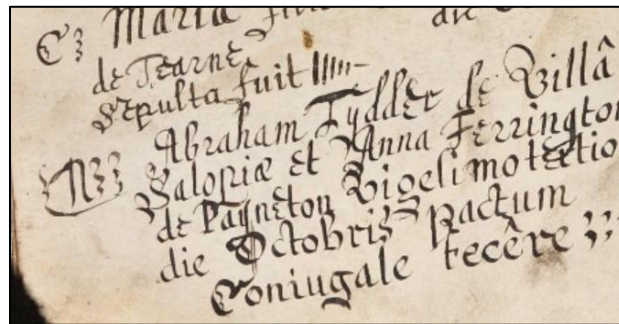 C: Maria fuit
die
de Tearne
Sepulta fuit
N: Abraham Tydder de Villâ
Salopiæ et Anna Ferrington
de Payneton Vigesimo tertio
die Octobris Pactum
Coniugale fecêre